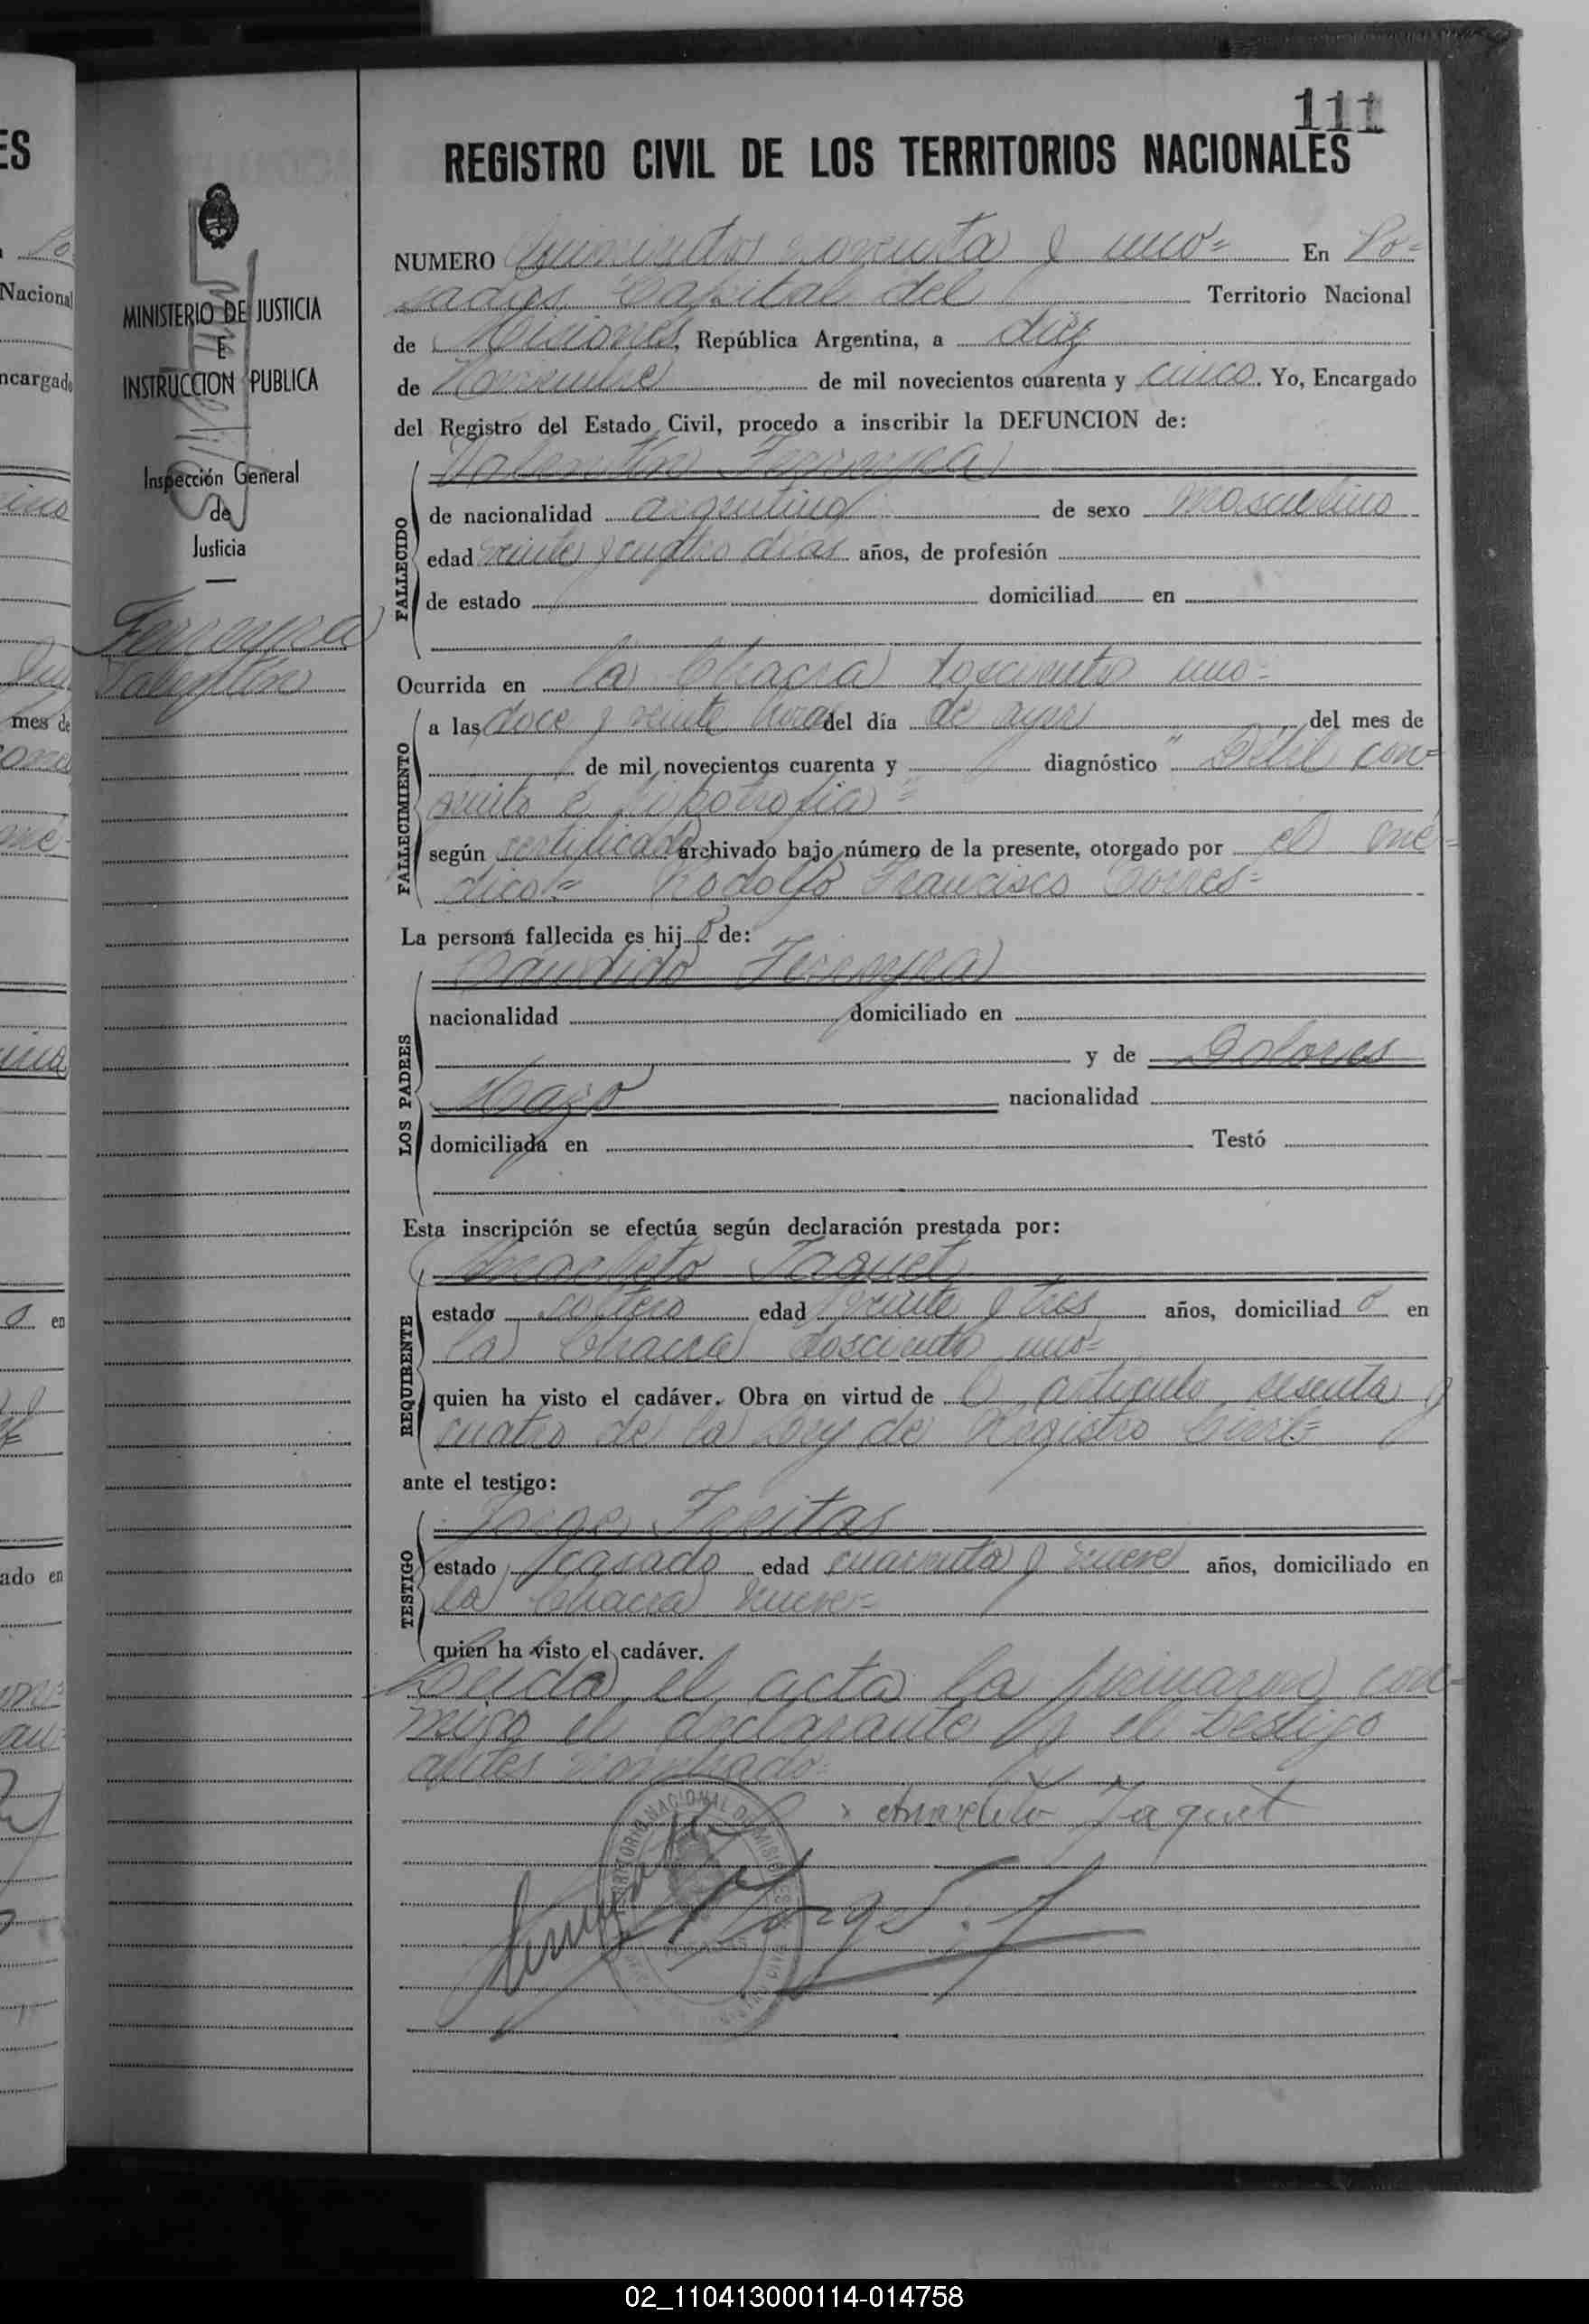 111
REGISTRO CIVIL DE LOS TERRITORIOS NACIONALES
MINISTERIO DE JUSTICIA
E
INSTRUCCION PUBLICA
Inspección General
de
Justicia
Ferreyra
Valentín
NUMERO Quinientos noventa y uno= En Po=
sadas Capital del Territorio Nacional
de Misiones, República Argentina, a diez
de Noviembre de mil novecientos cuarenta y cinco. Yo, Encargado
del Registro del Estado Civil, procedo a inscribir la DEFUNCION de:
Valentín Ferreyra
FALLECIDO
de nacionalidad argentino de sexo masculino
edad veinte y cuatro días años, de profesión
de estado domiciliad en
Ocurrida en la Chacra doscientos uno=
FALLECIMIENTO
a las doce y veinte horas del día de ayer del mes de
de mil novecientos cuarenta y diagnóstico "Débil con=
génito e hipotrofia"=
según certificado archivado bajo número de la presente, otorgado por el mé=
dico= Rodolfo Francisco Torres=
La persona fallecida es hij o de:
LOS PADRES
Cándido Ferreyra
nacionalidad domiciliado en
y de Dolores
nacionalidad
domiciliada en Testó
Esta inscripción se efectúa según declaración prestada por:
REQUIRENTE
Anacleto Jaquet
estado soltero edad veinte y tres años, domiciliad o en
la Chacra doscientos uno=
quien ha visto el cadáver. Obra en virtud de artículo sesenta y
cuatro de la Ley de Registro Civil=
ante el testigo:
TESTIGO
Jorge Freitas
estado casado edad cuarenta y nueve años, domiciliado en
la Chacra nueve=
quien ha visto el cadáver.
Leída el acta la firmaron con=
migo el declarante y el testigo
antes nombrado=
Anacleto Jaquet
Jorge F.
02_110413000114-014758